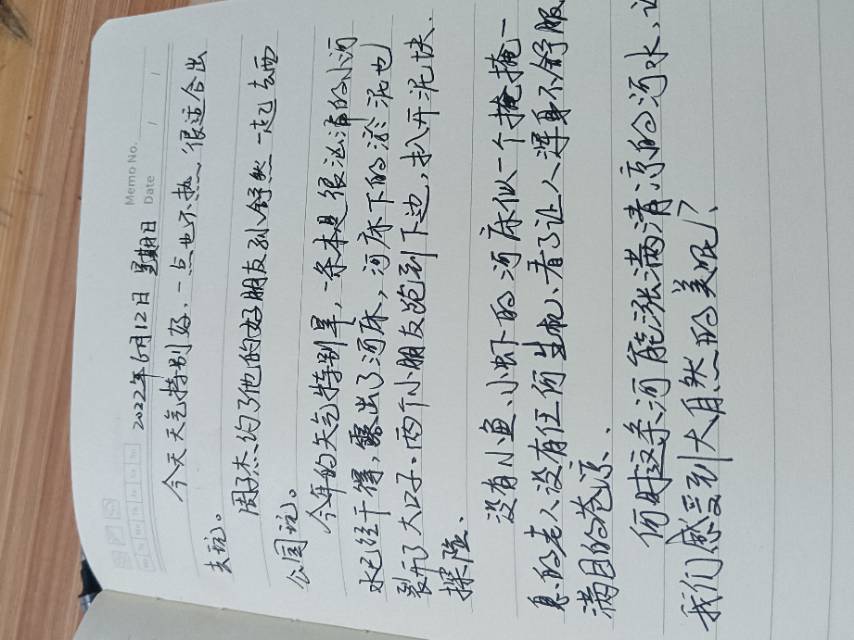 Memo No.
Date / /
2022年6月12日 星期日
今天天气特别好,一点也不热 很适合出
去玩。
周子杰约了他的好朋友孙舒然一起去西
公园玩。
今年的天气特别旱,一条本是很汹涌的小河
水已经干得,露出了河床,河床下的淤泥也
裂开了大口子。两个小朋友跑到下边,扒开泥块
探险、
没有小鱼、小虾的河床似一个掩掩一
息的老人没有任何生机、看了让人浑身不舒服
满目的苍凉、
何时这条河能涨满清凉的河水,让
我们感受到大自然的美呢?